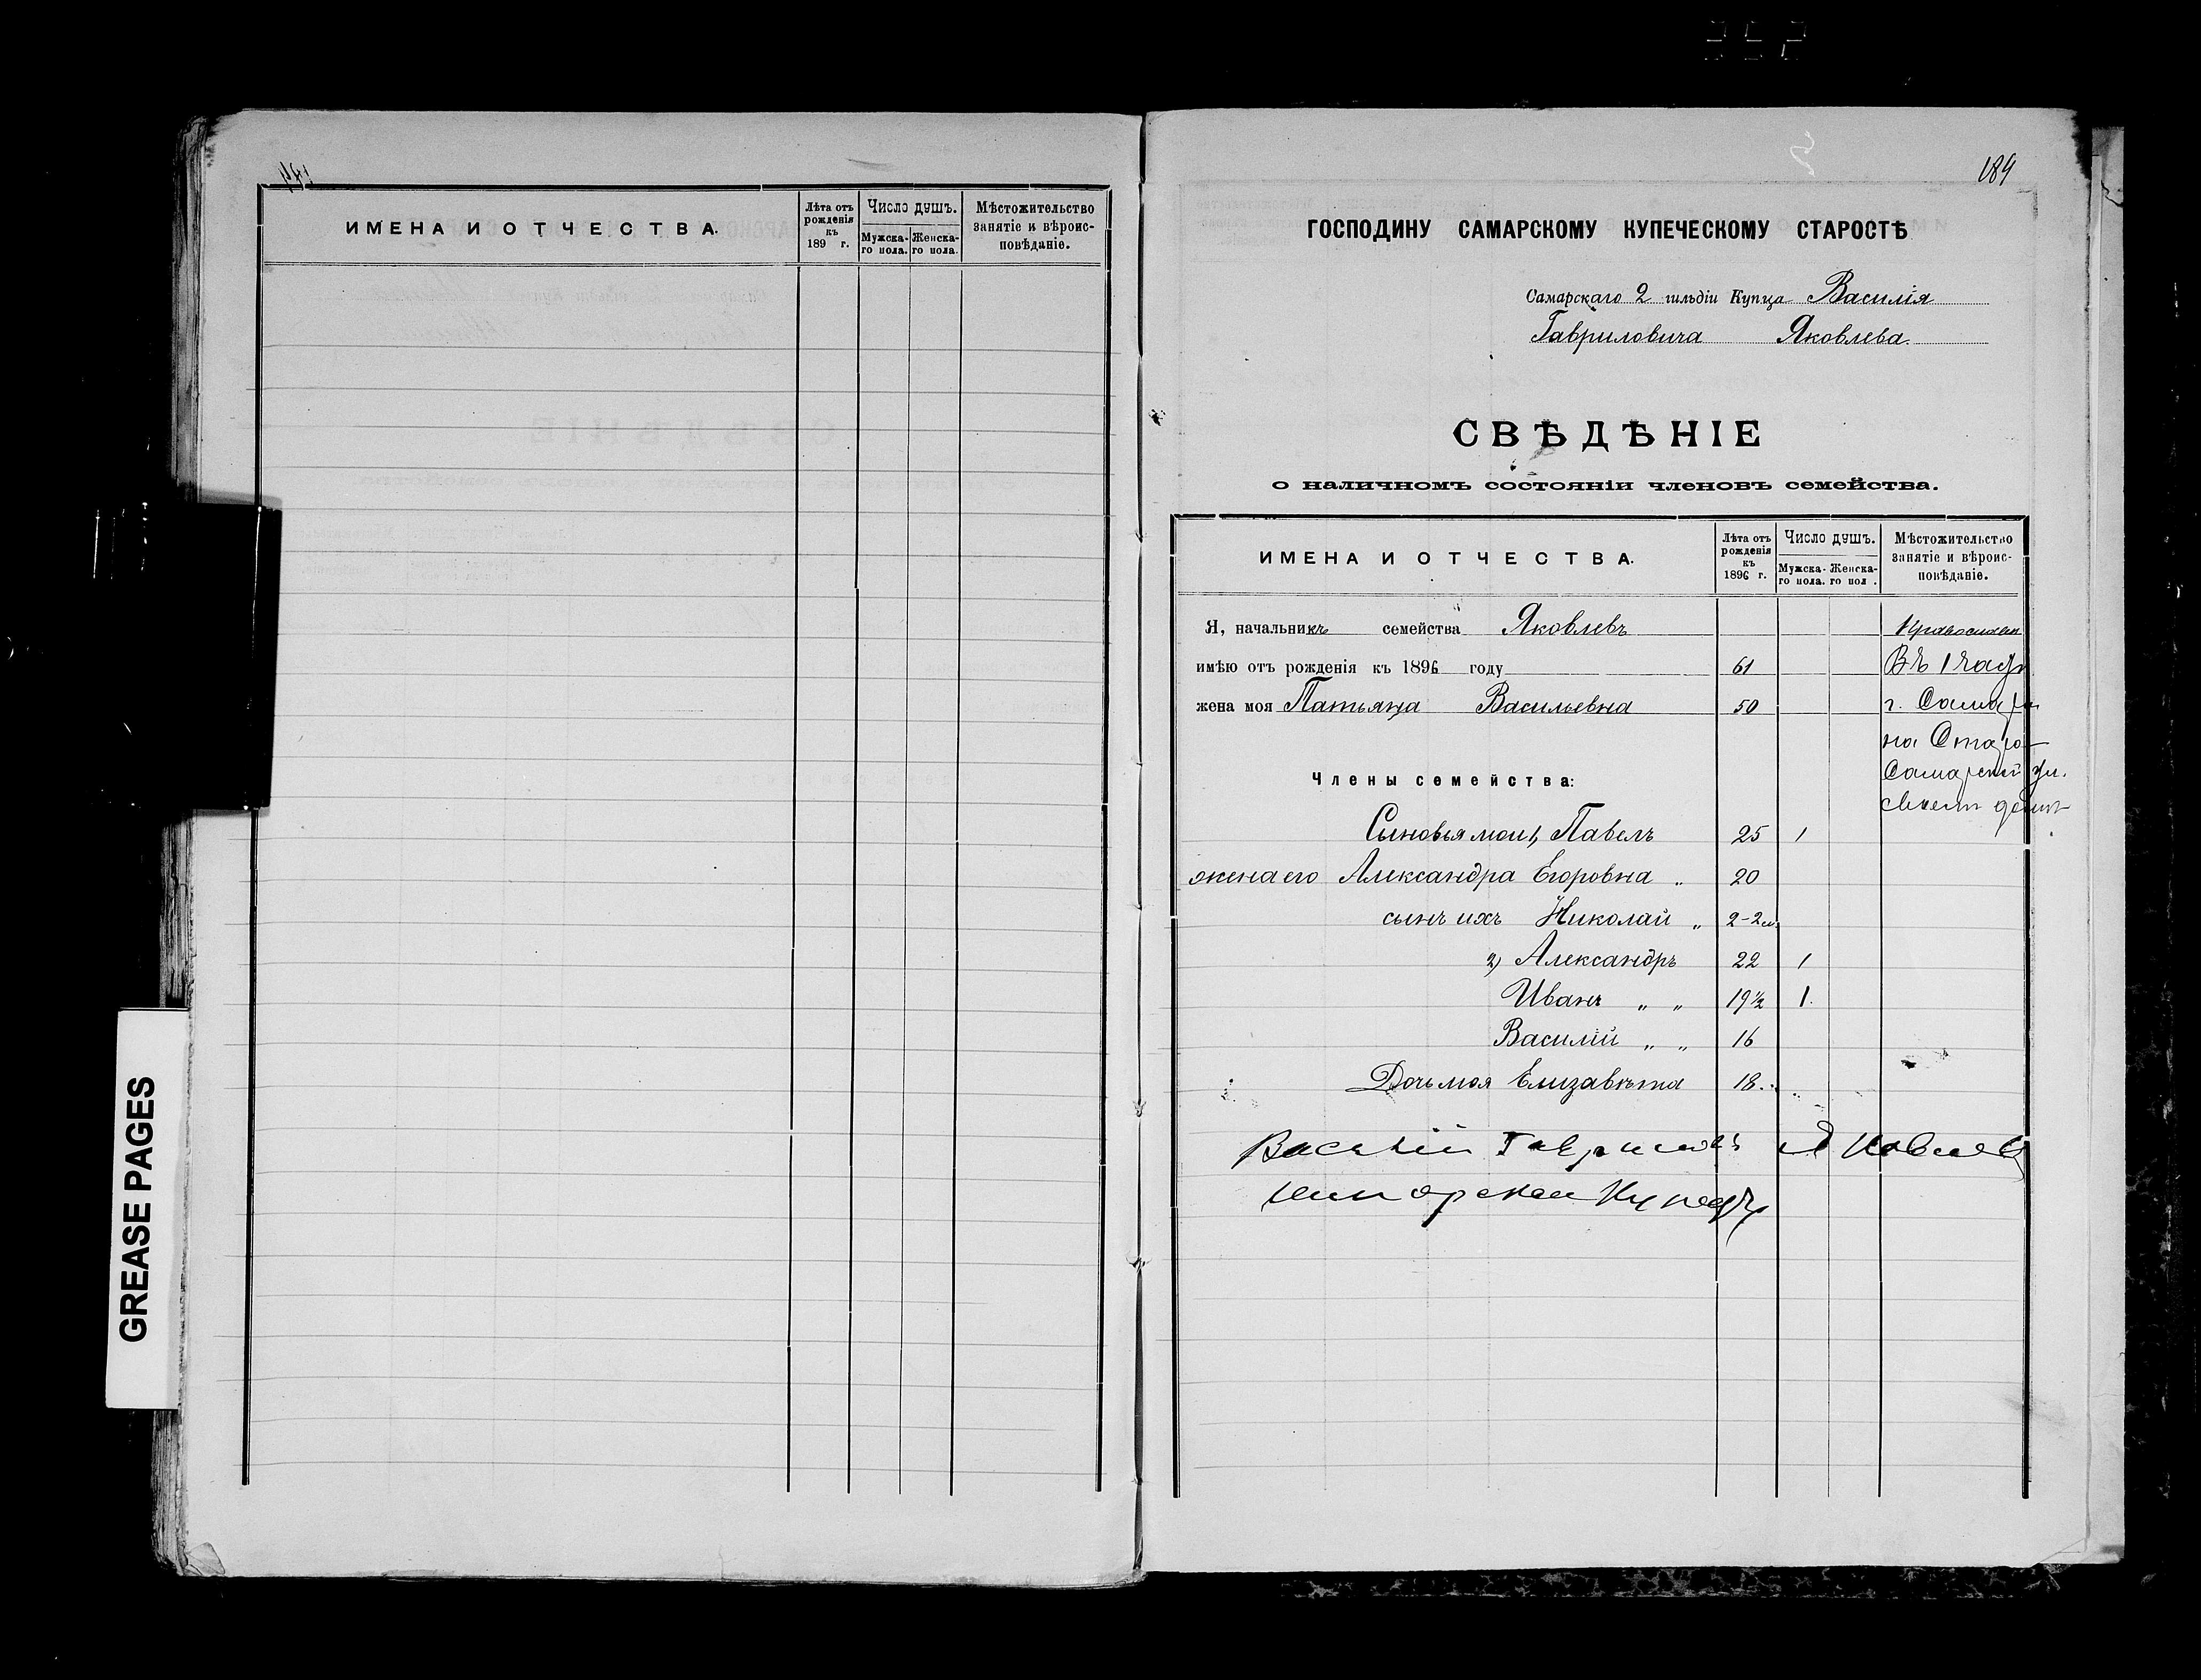 ИМЕНА И ОТЧЕСТВА.
Лѣта отъ рожденія къ 189 г.
Число душъ.
Мужска-го пола.
Женска-го пола.
Мѣстожительство занятіе и вѣроис-повѣданіе.
GREASE PAGES
189
ГОСПОДИНУ САМАРСКОМУ КУПЕЧЕСКОМУ СТАРОСТѢ
Самарскаго 2 гильдіи Купца Василія
Гавриловича Яковлева.
СВѢДѢНІЕ
о наличномъ состояніи членовъ семейства.
ИМЕНА И ОТЧЕСТВА.
Лѣта отъ рожденія къ 1896 г.
Число душъ.
Мужска-го пола.
Женска-го пол .
Мѣстожительство занятіе и вѣроис-повѣданіе.
Я, начальникъ семейства Яковлевъ
имѣю отъ рожденія къ 1896 году 61 Въ 1 части
жена моя Татьяна Васильевна 50 г. Самары
на Старо-
Члены семейства: Самарской ул.
Сыновья мои 1, Павелъ 25 1
жена его Александра Егоровна „ 20
сынъ ихъ Николай „ 2-2 м.
2) Александръ 22 1
Иванъ „ „ 19½ 1.
Василій „ „ 16
Дочь моя Елизавѣта 18.
Василій Гавриловъ Яковлевъ
Купецъ